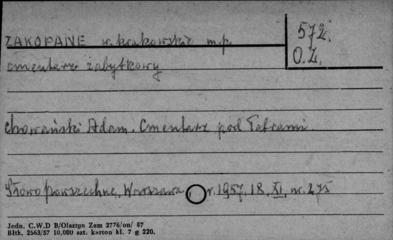 572.
ZAKOPANE w. krakowskie m.p.
O.Z.
cmentarz zabytkowy
Chowański Adam. Cmentarz pod Tatrami.
Słowo Powszechne, Warszawa, r. 1957. 18. XI, nr. 275
Jedn. C.W.D B/Olsztyn Zam 2776/on/ 57
Błth. 2563/57 10,000 szt. karton kl. 7 g 220.